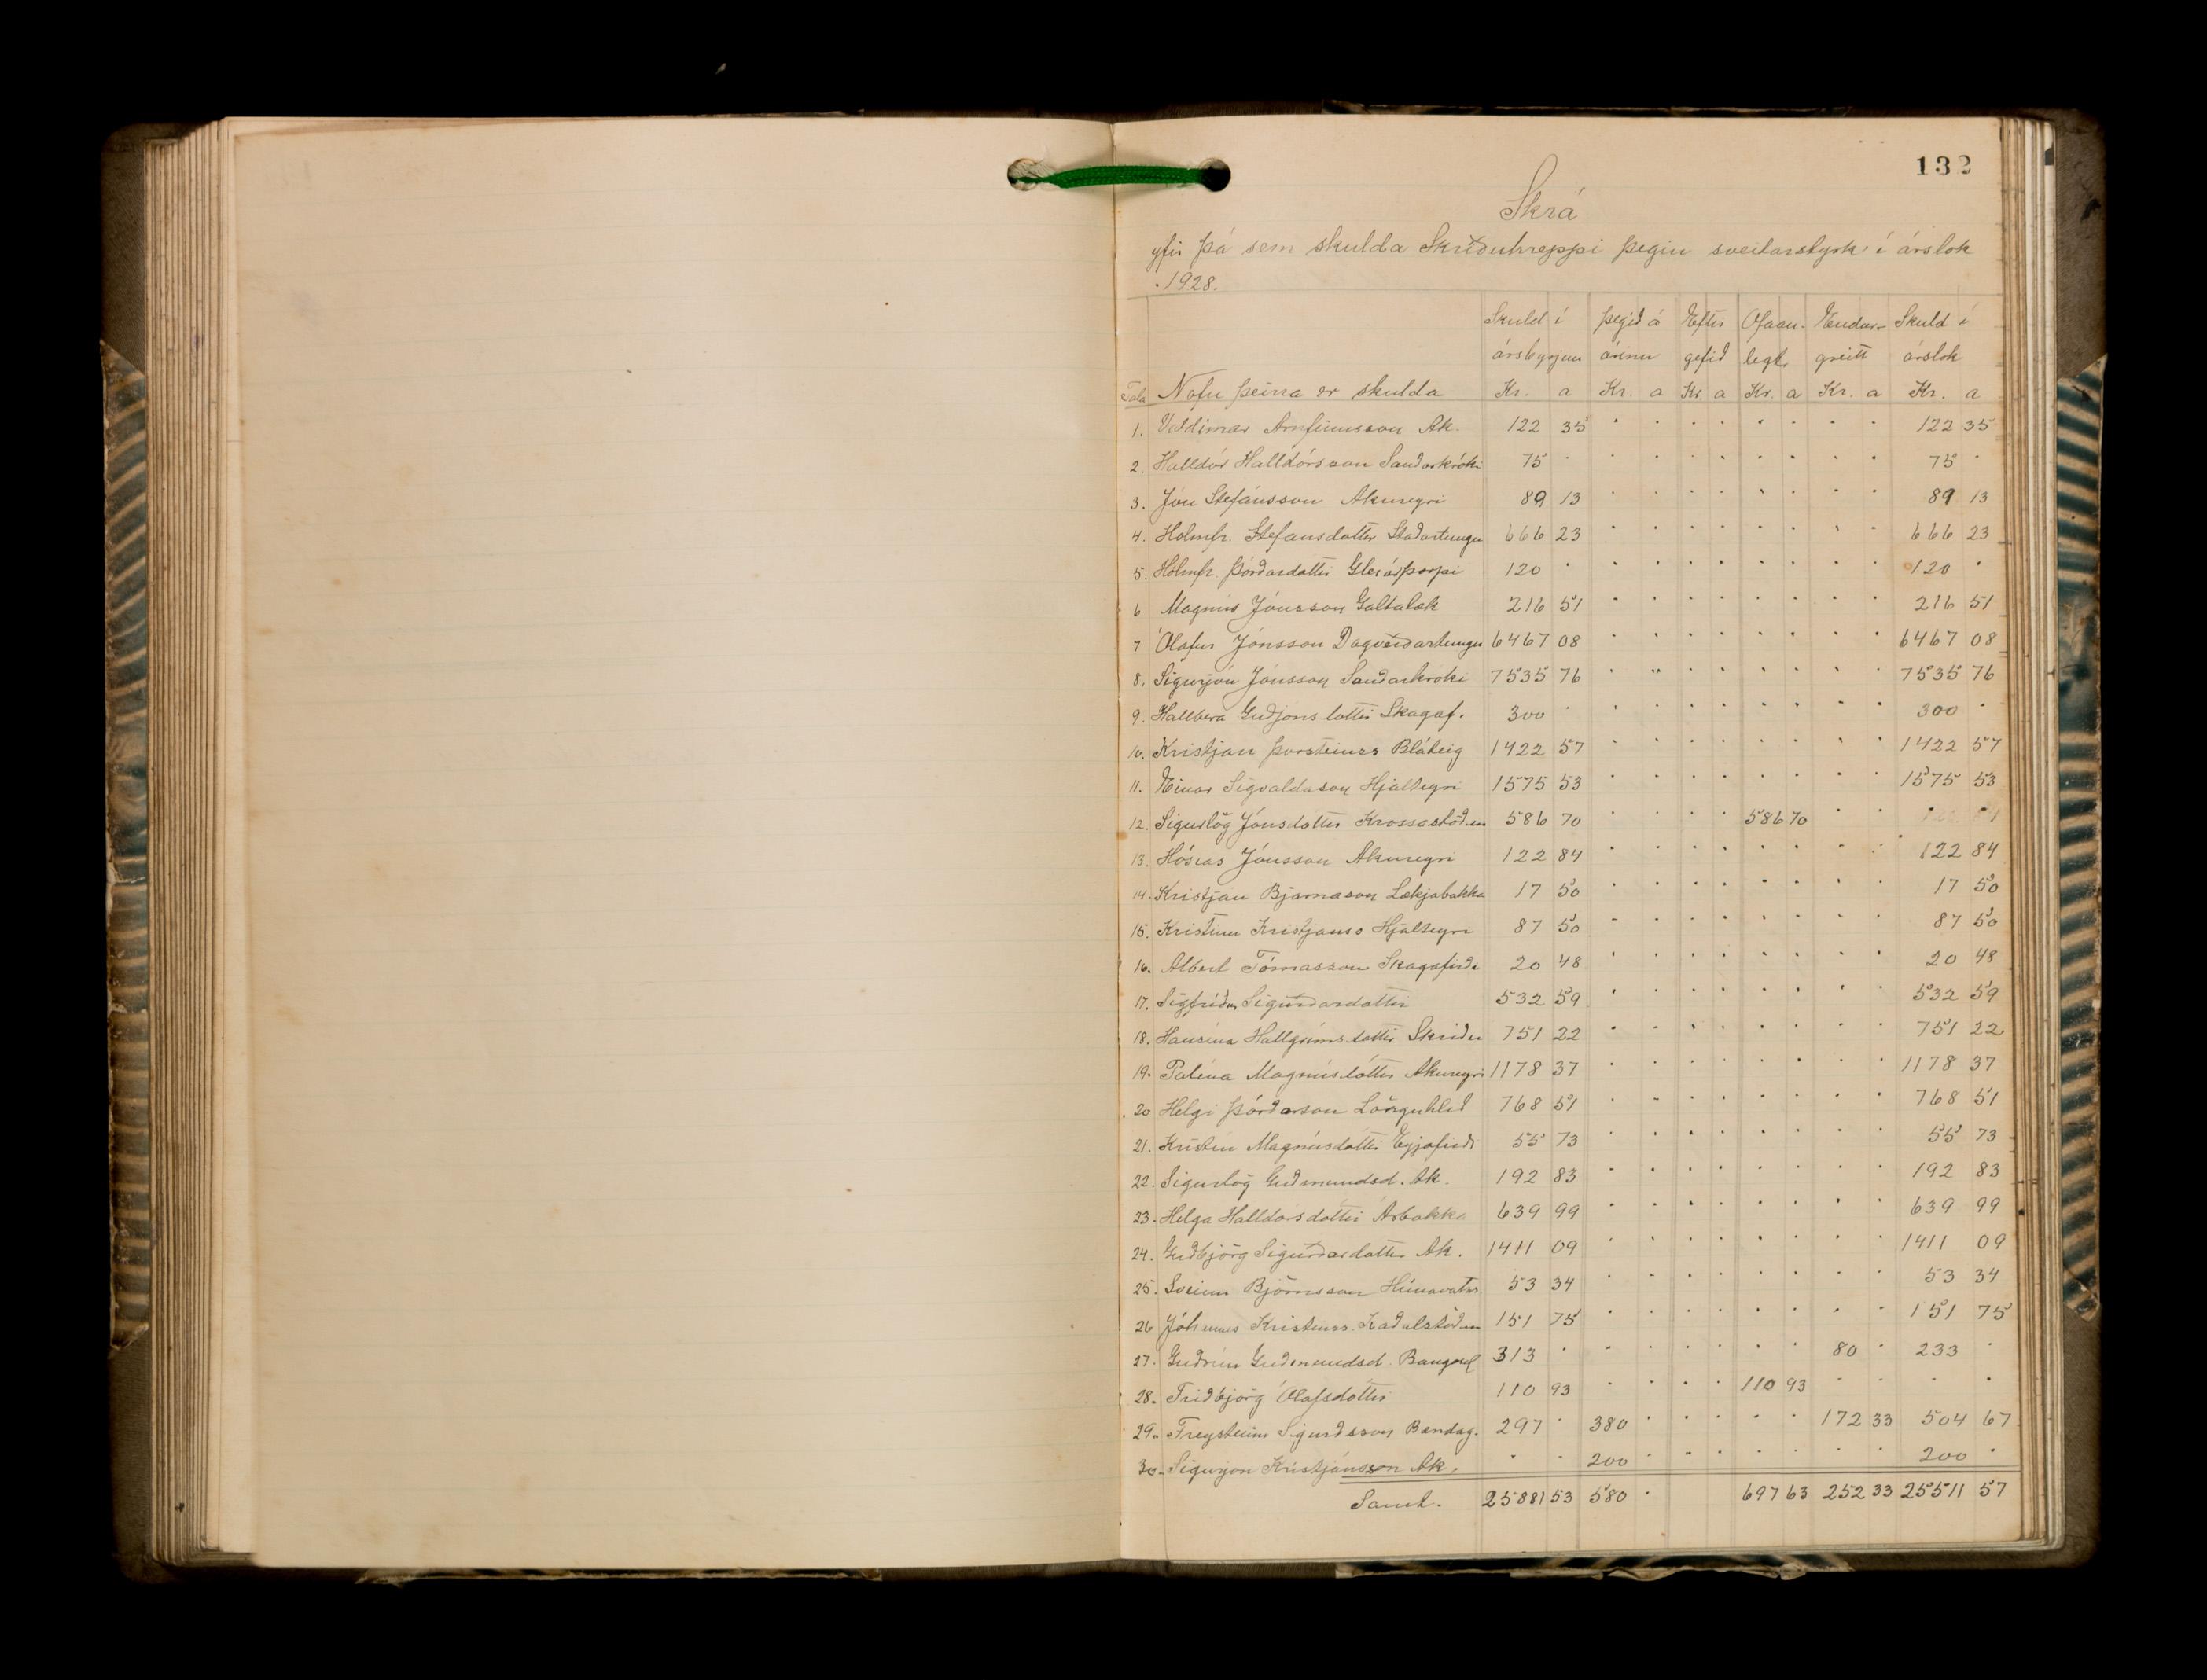 132
Skrá
yfir þá sem skulda Skriðuhreppi þegin sveitarstyrk í árslok
1928.
Skuld í þegið á Eftir Ofaan- Endur- Skuld í
ársbyrjun árinu gefið legt. greitt árslok
Tala Nöfn þeirra er skulda Kr. a Kr. a Kr. a Kr. a Kr. a Kr. a
1. Valdimar Arnfinnsson Ak. 122 35 " " " " " " " " 122 35
2. Halldór Halldórsson Sauðarkróki 75 " " " " " " " " " 75 "
3. Jón Stefánsson Akureyri 89 13 " " " " " " " " 89 13
4. Holmfr. Stefansdottir Staðartungu 666 23 " " " " " " " " 666 23
5. Hólmfr. Þórðardottir Glerárþorpi 120 " " " " " " " " " 120 "
6 Magnús Jónsson Galtalæk 216 51 " " " " " " " " 216 51
7 Ólafur Jónsson Dagverðartungu 6467 08 " " " " " " " " 6467 08
8. Sigurjón Jónsson Sauðarkroki 7535 76 " " " " " " " " 7535 76
9. Hallbera Guðjonsdottir Skagaf. 300 " " " " " " " " " 300 "
10. Kristján Þorsteinss Bláteig 1422 57 " " " " " " " " 1422 57
11. Einar Sigvaldason Hjalteyri 1575 53 " " " " " " " " 1575 53
12. Sigurlög Jónsdottir Krossastöðum 586 70 " " " " 586 70 " "
13. Hóseas Jónsson Akureyri 122 84 " " " " " " " " 122 84
14. Kristján Bjarnason Lækjabakka 17 50 " " " " " " " " 17 50
15. Kristinn Kristjanss Hjalteyri 87 50 " " " " " " " " 87 50
16. Albert Tómasson Skagafirði 20 48 " " " " " " " " 20 48
17. Sigfríður Sigurðardottir 532 59 " " " " " " " " 532 59
18. Hansína Hallgrímsdottir Skriðu 751 22 " " " " " " " " 751 22
19. Palína Magnúsdóttir Akureyri 1178 37 " " " " " " " " 1178 37
20 Helgi Þórðarson Lönguhlið 768 51 " " " " " " " " 768 51
21. Kristín Magnúsdóttir Eyjafirði 55 73 " " " " " " " " 55 73
22. Sigurlög Guðmundsd. Ak. 192 83 " " " " " " " " 192 83
23. Helga Halldorsdóttir Árbakka 639 99 " " " " " " " " 639 99
24. Guðbjörg Sigurðardottir Ak. 1411 09 " " " " " " " " 1411 09
25. Sveinn Björnsson Húnavatns. 53 34 " " " " " " " " 53 34
26 Jóhannes Kristinss. Kaðalstöðum 151 75 " " " " " " " " 151 75
27. Guðrún Guðmundsd. 313 " " " " " " " 80 " 233 "
28. Friðbjörg Ólafsdóttir 110 93 " " " " 110 93 " " " "
29. Freysteinn Sigurðsson Bændag. 297 " 380 " " " " " 172 33 504 67
30. Sigurjon Kristjánsson Ak. " " 200 " " " " " " " 200 "
Samt. 25881 53 580 " 697 63 252 33 25511 57